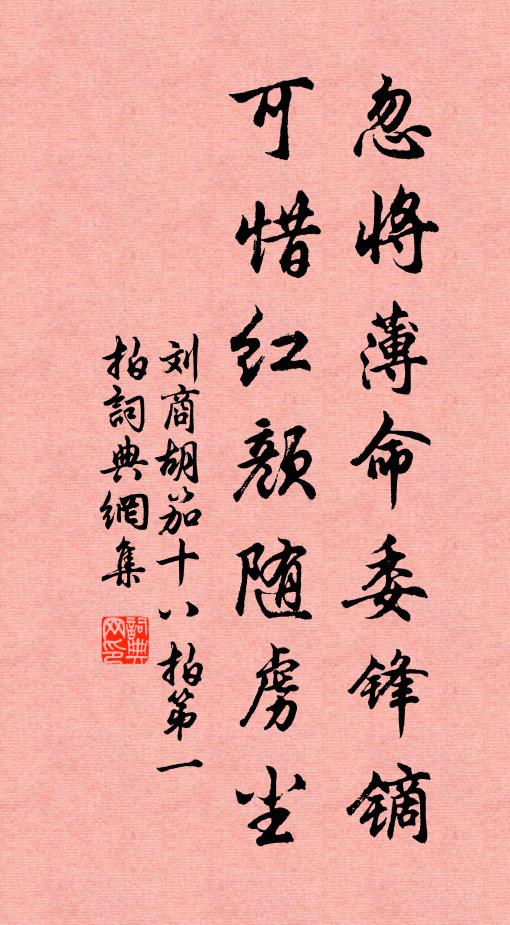 忽将薄命委锋镝
可惜红颜随虏尘
刘商胡笳十八拍第一
拍詞典網集
詞典网印